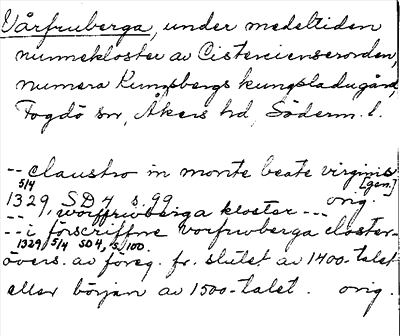 Vårfruberga, under medeltiden
nunnekloster av Cistercienserorden,
numera Kungsbergs kungsladugård,
Fogdö sn, Åkers hd, Söderm. l.
-- claustro in monte beate virginis
[gen.]
1329 5/4 SD 4 s. 99. orig.
-- worffrwberga kloster ---
-- i förscriffne vorfrwberga closter-
1329 5/4 SD4, s. 100.
övers. av föreg. fr. slutet av 1400-talet
eller början av 1500-talet. orig.